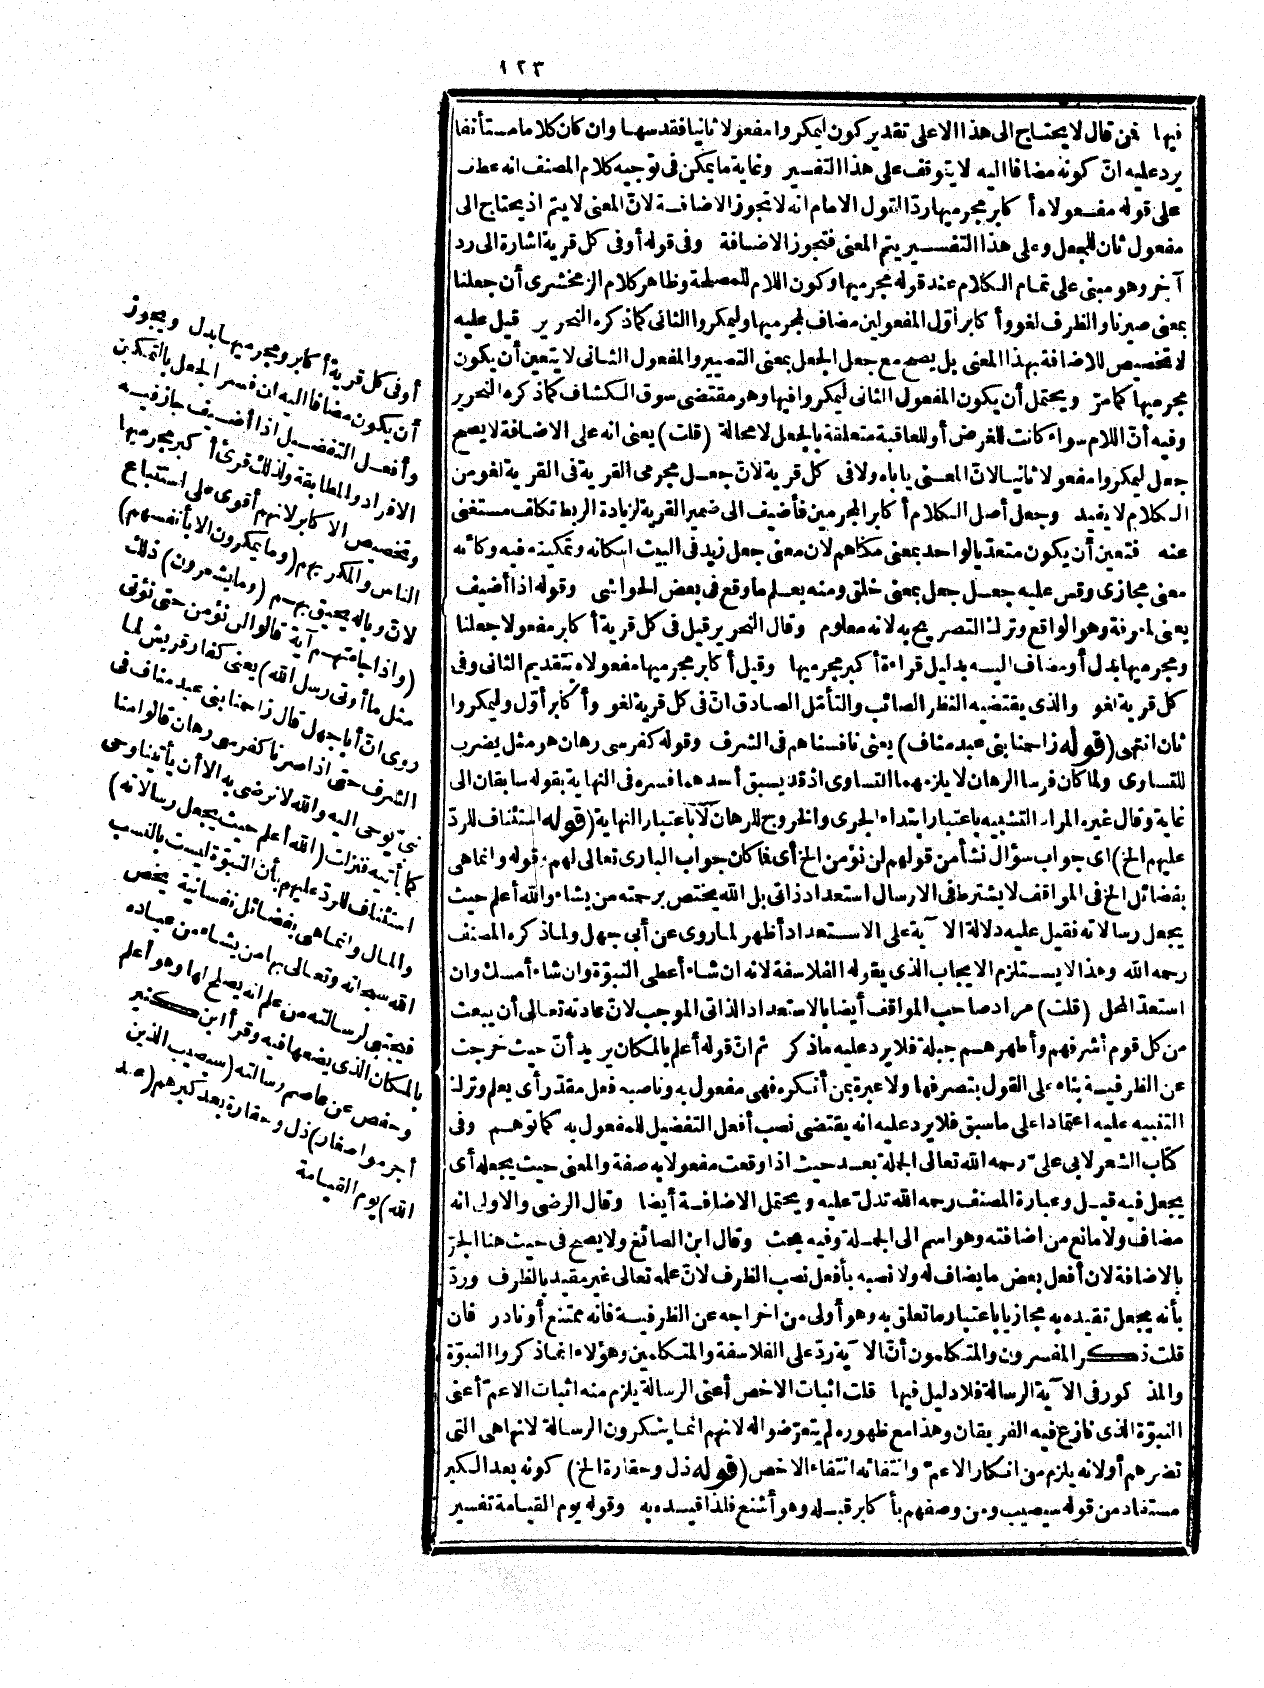 ١٢٣
فيها فمن قال لا يحتاج الى هذا الا على تقدير كون ليمكروا مفعولا ثانيا فقد سها وان كان كلاما مستأنفا
يرد عليه انّ كونه مضافا اليه لا يتوقف على هذا التفسير وغاية ما يمكن فى توجيه كلام المصنف انه عطف
على قوله مفعولاه أكابر مجرميها ردّا لقول الامام انه لا تجوز الاضافة لانّ المعنى لا يتم اذ يحتاج الى
مفعول ثان للجعل وعلى هذا التفسير يتم المعنى فتجوز الاضافة وفى قوله أو فى كل قرية اشارة الى رد
آخر وهو مبنى على تمام الكلام عند قوله مجرميها وكون اللام للمصلحة وظاهر كلام الزمخشرى أن جعلنا
بمعنى صيرنا والظرف لغو وأكابر أوّل المفعولين مضاف لمجرميها وليمكروا الثانى كما ذكره النحرير قيل عليه
لا تخصيص للاضافة بهذا المعنى بل يصح مع جعل الجعل بمعنى التصيير والمفعول الثانى لا يتعين أن يكون
مجرميها كما مرّ ويحتمل أن يكون المفعول الثانى ليمكروا فيها وهو مقتضى سوق الكشاف كما ذكره النحرير
وفيه أنّ اللام سواء كانت للغرض أو للعاقبة متعلقة بالجعل لا محالة (قلت) يعنى انه على الاضافة لا يصح
جعل ليمكروا مفعولا ثانيا لانّ المعنى يأباه ولا فى كل قرية لانّ جعل مجرمى القرية فى القرية لغو من
الكلام لا يفيد وجعل أصل الكلام أكابر المجرمين فأضيف الى ضمير القرية لزيادة الربط تكلف مستغنى
عنه فتعين أن يكون متعديا لواحد بمعنى مكناهم لان معنى جعل زيد فى البيت اسكانه وتمكينه فيه وكأنه
معنى مجازى وقس عليه جعل جعل بمعنى خلق ومنه يعلم ما وقع فى بعض الحواشى وقوله اذا أضيف
يعنى لمعرفة وهو الواقع وترك التصريح به لانه معلوم وقال النحرير قيل فى كل قرية أكابر مفعولا جعلنا
ومجرميها بدل أو مضاف اليه بدليل قراءة أكبر مجرميها وقيل أكابر مجرميها مفعولاه بتقديم الثانى وفى
كل قرية لغو والذى يقتضيه النظر الصائب والتأمّل الصادق انّ فى كل قرية لغو وأكابر أوّل وليمكروا
ثان انتهى (قوله زاحمنا بنى عبد مناف) يعنى نافسناهم فى الشرف وقوله كفرسى رهان هو مثل يضرب
للتساوى ولما كان فرسا الرهان لا يلزمهما التساوى اذ قد يسبق أحدهما فسره فى النهاية بقوله سابقان الى
غاية وقال غيره المراد التشبيه باعتبار ابتداء الجرى والخروج للرهان لا باعتبار النهاية (قوله استئناف للردّ
عليهم الخ) اى جواب سؤال نشأ من قولهم لن نؤمن الخ أى فما كان جواب البارى تعالى لهم، قوله وانما هى
بفضائل الخ فى المواقف لا يشترط فى الارسال استعداد ذاتى بل الله يختص برحمته من يشاء والله أعلم حيث
يجعل رسالاته فقيل عليه دلالة الآية على الاستعداد أظهر لما روى عن أبى جهل ولما ذكره المصنف
رحمه الله وهذا لا يستلزم الايجاب الذى يقوله الفلاسفة لانه ان شاء أعطى النبوّة وان شاء أمسك وان
استعدّ المحل (قلت) مراد صاحب المواقف أيضا بالاستعداد الذاتى الموجب لانّ عادته تعالى أن يبعث
من كل قوم أشرفهم وأطهرهم جبلة فلا يرد عليه ما ذكر ثم انّ قوله أعلم بالمكان يريد أنّ حيث خرجت
عن الظرفية بناء على القول بتصرفها ولا عبرة بمن أنكره فهى مفعول به وناصبه فعل مقدّر أى يعلم وترك
التنبيه عليه اعتمادا على ما سبق فلا يرد عليه انه يقتضى نصب أفعل التفضيل للمفعول به كما توهم وفى
كتاب الشعر لابى علىّ رحمه الله تعالى الجملة بعد حيث اذا وقعت مفعولا به صفة والمعنى حيث يجعله أى
يجعل فيه قيل وعبارة المصنف رحمه الله تدلّ عليه ويحتمل الاضافة أيضا وقال الرضى والاولى انه
مضاف ولا مانع من اضافته وهو اسم الى الجملة وفيه بحث وقال ابن الصائغ ولا يصح فى حيث هنا الجرّ
بالاضافة لان أفعل بعض ما يضاف له ولا نصبه بأفعل نصب الظرف لانّ علمه تعالى غير مقيد بالظرف وردّ
بأنه يجعل تقيده به مجازيا باعتبار ما تعلق به وهو أولى من اخراجه عن الظرفية فانه ممتنع أو نادر فان
قلت ذكر المفسرون والمتكلمون أنّ الآية ردّ على الفلاسفة والمتكلمين وهؤلاء انما ذكروا النبوّة
والمذكور فى الآية الرسالة فلا دليل فيها قلت اثبات الاخص أعنى الرسالة يلزم منه اثبات الاعمّ أعنى
النبوّة الذى نازع فيه الفريقان وهذا مع ظهوره لم يتعرّضوا له لانهم انما ينكرون الرسالة لانها هى التى
تضرهم أو لانه يلزم من انكار الاعمّ وانتفائه انتفاء الاخص (قوله ذل وحقارة الخ) كونه بعد الكبر
مستفاد من قوله سيصيب ومن وصفهم بأكابر قبله وهو أشنع فلذا قيده به وقوله يوم القيامة تفسير
أو فى كل قرية أكابر ومجرميها بدل ويجوز
أن يكون مضافا اليه ان فسر الجعل بالتمكين
وأفعل التفضيل اذا أضيف جاز فيه
الافراد والمطابقة ولذلك قرئ أكبر مجرميها
وتخصيص الاكابر لانهم أقوى على استتباع
الناس والمكر بهم (وما يمكرون الا بأنفسهم)
لانّ وباله يحيق بهم (وما يشعرون) ذلك
(واذا جاءتهم آية قالوا لن نؤمن حتى نؤتى
مثل ما أوتى رسل الله) يعنى كفار قريش لما
روى انّ أبا جهل قال زاحمنا بنى عبد مناف فى
الشرف حتى اذا صرنا كفرسى رهان قالوا منا
نبىّ يوحى اليه والله لا نرضى به الا أن يأتينا وحى
كما يأتيه فنزلت (الله أعلم حيث يجعل رسالاته)
استئناف للردّ عليهم بأن النبوّة ليست بالنسب
والمال وانما هى بفضائل نفسانية يخص
الله سبحانه وتعالى بها من يشاء من عباده
فيجتبى لرسالته من علم انه يصلح لها وهو أعلم
بالمكان الذى يضعها فيه وقرأ ابن كثير
وحفص عن عاصم رسالته (سيصيب الذين
أجرموا صغار) ذل وحقارة بعد كبرهم (عند
الله) يوم القيامة